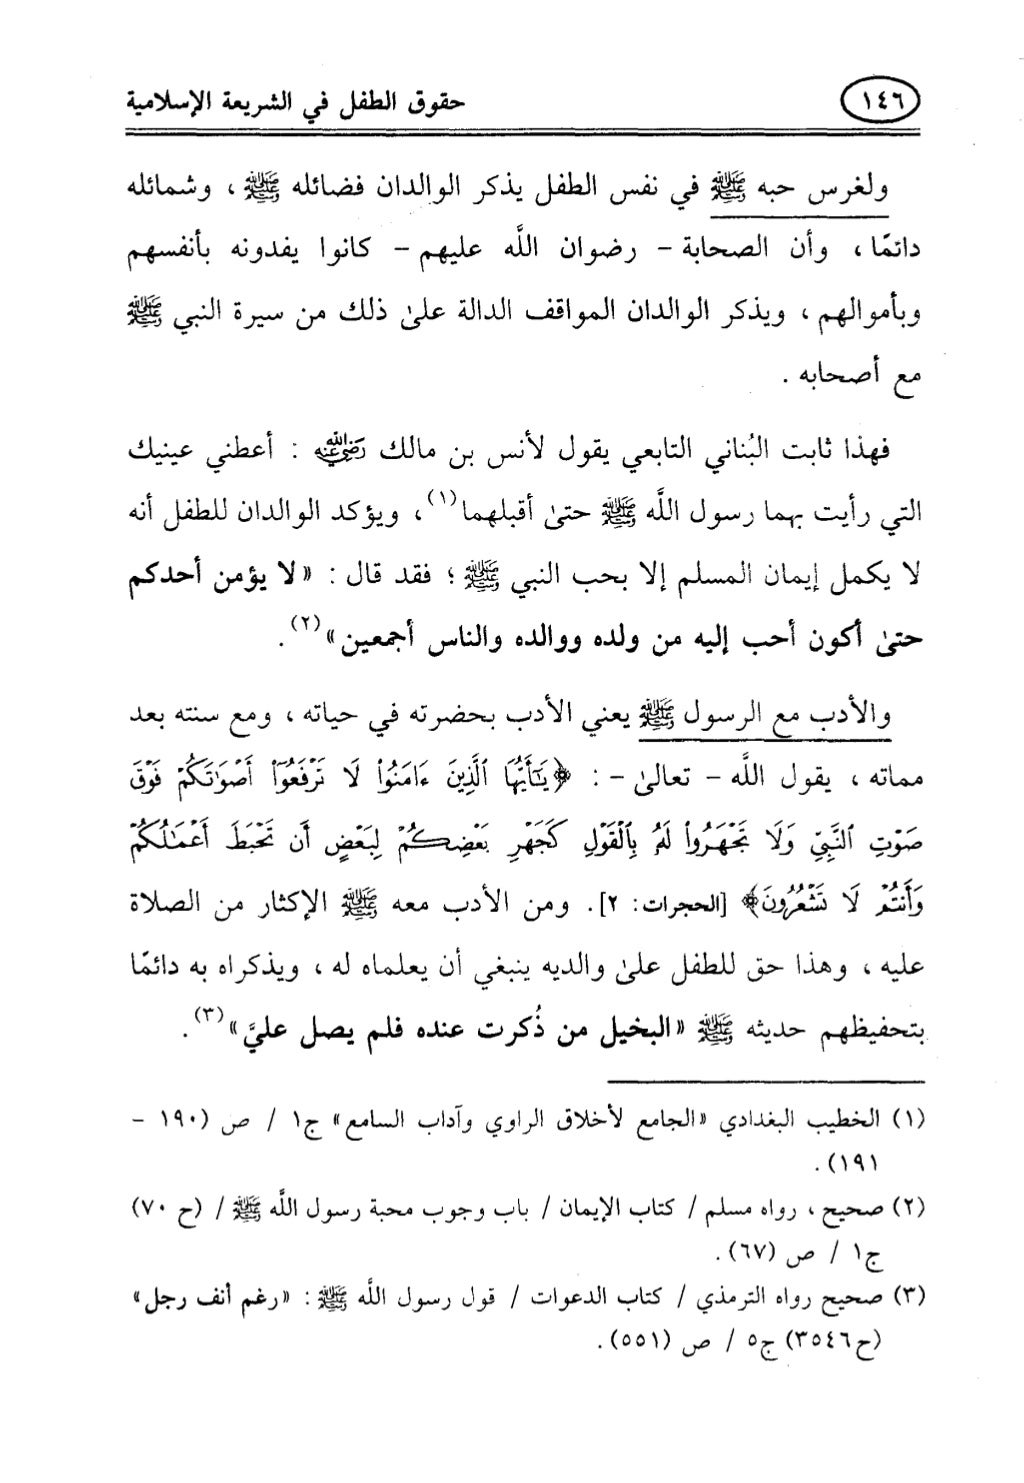 ١٤٦
حقوق الطفل في الشريعة الإسلامية
ولغرس حبه ﷺ في نفس الطفل يذكر الوالدان فضائله ﷺ ، وشمائله
دائمًا ، وأن الصحابة - رضوان اللَّه عليهم - كانوا يفدونه بأنفسهم
وبأموالهم ، ويذكر الوالدان المواقف الدالة علىٰ ذلك من سيرة النبي ﷺ
مع أصحابه .
فهذا ثابت البُناني التابعي يقول لأنس بن مالك رضي الله عنه : أعطني عينيك
التي رأيت بهما رسول اللَّه ﷺ حتىٰ أقبلهما(١) ، ويؤكد الوالدان للطفل أنه
لا يكمل إيمان المسلم إلا بحب النبي ﷺ ؛ فقد قال : «لا يؤمن أحدكم
حتىٰ أكون أحب إليه من ولده ووالده والناس أجمعين»(٢) .
والأدب مع الرسول ﷺ يعني الأدب بحضرته في حياته ، ومع سنته بعد
مماته ، يقول اللَّه - تعالىٰ - : ﴿يَٰٓأَيُّهَا ٱلَّذِينَ ءَامَنُوا۟ لَا تَرْفَعُوٓا۟ أَصْوَٰتَكُمْ فَوْقَ
صَوْتِ ٱلنَّبِيِّ وَلَا تَجْهَرُوا۟ لَهُۥ بِٱلْقَوْلِ كَجَهْرِ بَعْضِكُمْ لِبَعْضٍ أَن تَحْبَطَ أَعْمَٰلُكُمْ
وَأَنتُمْ لَا تَشْعُرُونَ﴾ [الحجرات: ٢]. ومن الأدب معه ﷺ الإكثار من الصلاة
عليه ، وهذا حق للطفل علىٰ والديه ينبغي أن يعلماه له ، ويذكراه به دائمًا
بتحفيظهم حديثه ﷺ «البخيل من ذُكرت عنده فلم يصل عليَّ»(٣) .
(١) الخطيب البغدادي «الجامع لأخلاق الراوي وآداب السامع» ج١ / ص (١٩٠ -
١٩١) .
(٢) صحيح ، رواه مسلم / كتاب الإيمان / باب وجوب محبة رسول اللَّه ﷺ / (ح ٧٠)
ج١ / ص (٦٧) .
(٣) صحيح رواه الترمذي / كتاب الدعوات / قول رسول اللَّه ﷺ : «رغم أنف رجل»
(ح٣٥٤٦) ج٥ / ص (٥٥١) .